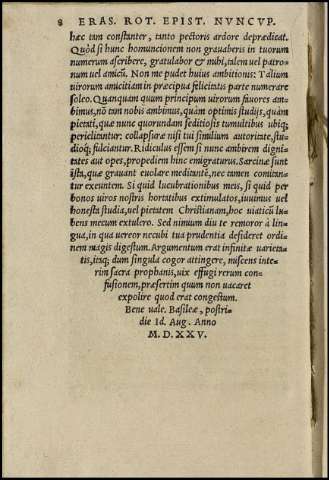 8 ERAS. ROT. EPIST. NVNCVP.
hæc tam constanter, tanto pectoris ardore deprædicat.
Quòd si hunc homuncionem non grauaberis in tuorum
numerum ascribere, gratulabor & mihi, talem uel patro-
num uel amicū. Non me pudet huius ambitionis: Talium
uirorum amicitiam in præcipua felicitatis parte numerare
soleo. Quanquam quum principum uirorum fauores am-
bimus, nō tam nobis ambimus, quàm optimis studijs, quàm
pietati, quæ nunc quorundam seditiosis tumultibus ubiq;
periclitantur: collapsuræ nisi tui similium autoritate, stu-
dioq; fulciantur. Ridiculus essem si nunc ambirem digni-
tates aut opes, propediem hinc emigraturus. Sarcinæ sunt
ista, quæ grauant euolare meditantē, nec tamen comitan-
tur exeuntem. Si quid lucubrationibus meis, si quid per
bonos uiros nostris hortatibus extimulatos, iuuimus uel
honesta studia, uel pietatem Christianam, hoc uiaticū lu-
bens mecum extulero. Sed nimium diu te remoror à lin-
gua, in qua uereor necubi tua prudentia desideret ordi-
nem magis digestum. Argumentum erat infinitæ uarieta-
tis, itaq; dum singula cogor attingere, miscens inte-
rim sacra prophanis, uix effugi rerum con-
fusionem, præsertim quum non uacaret
expolire quod erat congestum.
Bene uale. Basileæ, postri-
die Id. Aug. Anno
M. D. XXV.